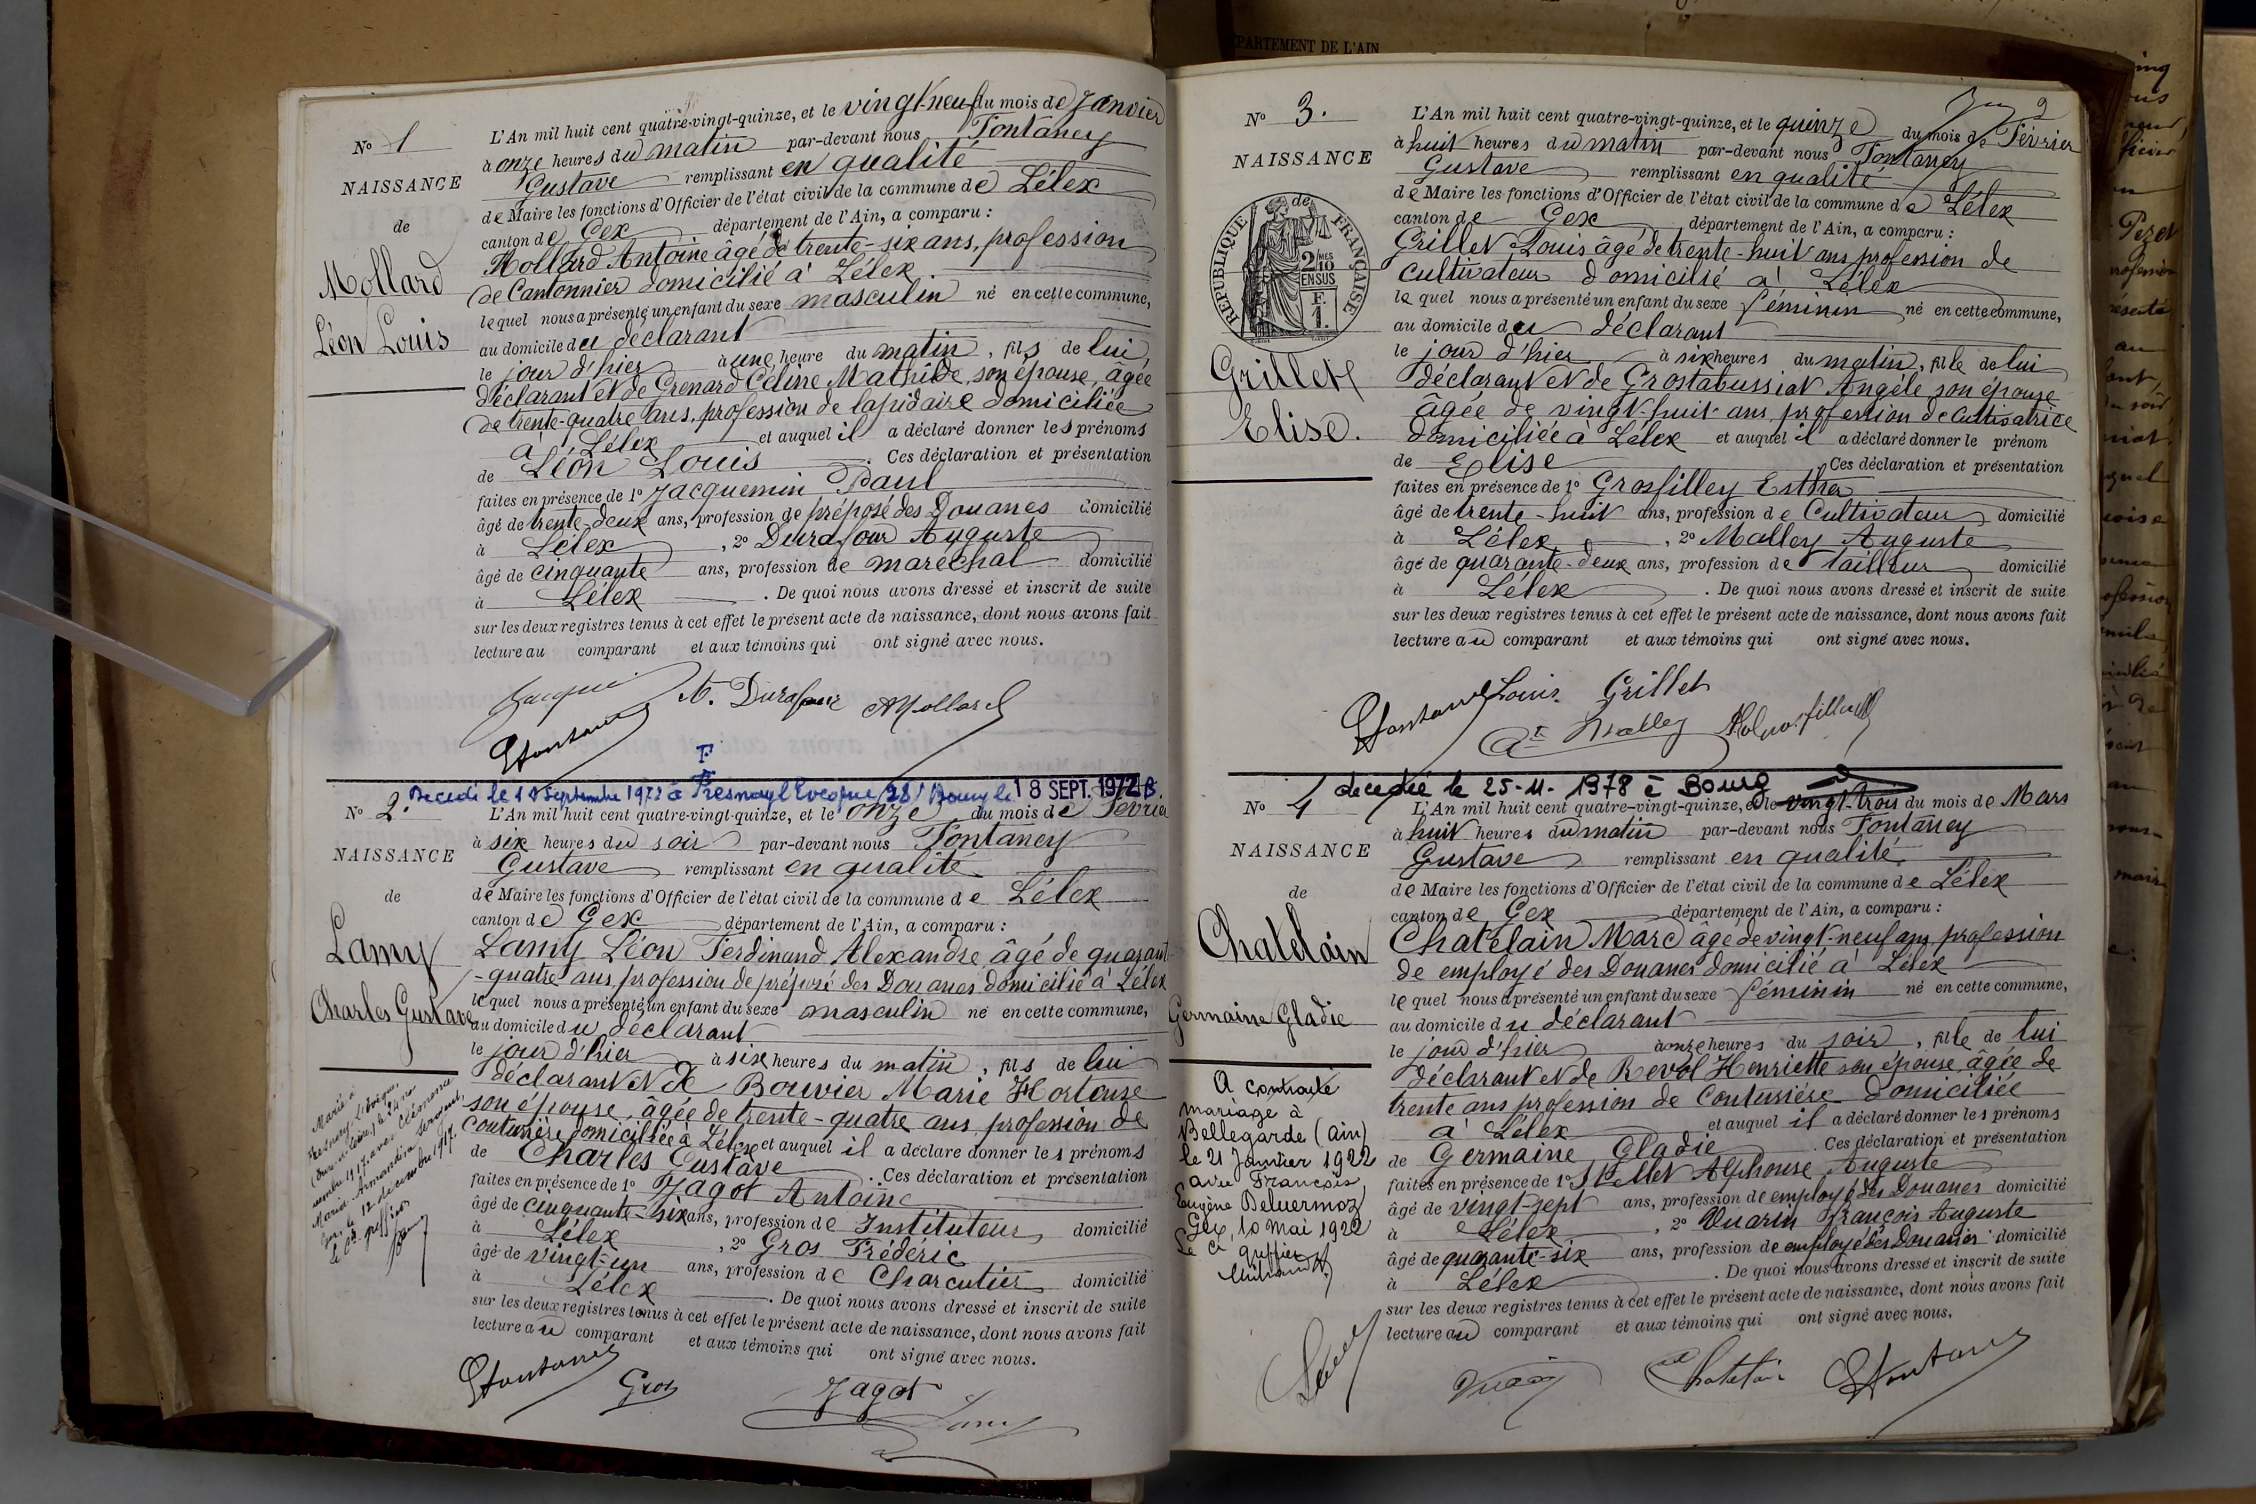 DÉPARTEMENT DE L'AIN
N° 1
NAISSANCE
de
Mollard
Léon Louis
L'An mil huit cent quatre-vingt-quinze, et le vingt-neuf du mois de Janvier
à onze heures du matin par-devant nous Fontaney
Gustave remplissant en qualité
de Maire les fonctions d'Officier de l'état civil de la commune de Lélex
canton de Gex département de l'Ain, a comparu :
Mollard Antoine âgé de trente-six ans, profession
de Cantonnier domicilié à Lélex.
lequel nous a présenté un enfant du sexe masculin né en cette commune,
au domicile du déclarant
le jour d'hier à une heure du matin, fils de lui
déclarant et de Grenard Céline Mathilde, son épouse, âgée
de trente-quatre ans, profession de lapidaire domiciliée
à Lélex et auquel il a déclaré donner les prénoms
de Léon Louis . Ces déclaration et présentation
faites en présence de 1° Jacquemin Paul
âgé de trente-deux ans, profession de préposé des Douanes domicilié
à Lélex , 2° Durafour Auguste
âgé de cinquante ans, profession de maréchal domicilié
à Lélex . De quoi nous avons dressé et inscrit de suite
sur les deux registres tenus à cet effet le présent acte de naissance, dont nous avons fait
lecture au comparant et aux témoins qui ont signé avec nous.
A. Durafour AMollard
GFontaney
F
Décédé le 18 Septembre 1972 à Fresnay l'Evêque (28) Bourg le 18 SEPT. 1972
N° 2.
NAISSANCE
de
Lamy
Charles Gustave
L'An mil huit cent quatre-vingt-quinze, et le onze du mois de Février
à six heures du soir par-devant nous Fontaney
Gustave remplissant en qualité
de Maire les fonctions d'Officier de l'état civil de la commune de Lélex
canton de Gex département de l'Ain, a comparu :
Lamy Léon Ferdinand Alexandre âgé de quarant
-quatre ans, profession de préposé des Douanes domicilié à Lélex
lequel nous a présenté un enfant du sexe masculin né en cette commune,
au domicile du déclarant
le jour d'hier à six heures du matin, fils de lui
déclarant et de Bouvier Marie Hortense
son épouse, âgée de trente-quatre ans, profession de
couturière domiciliée à Lélex et auquel il a déclaré donner les prénoms
de Charles Gustave . Ces déclaration et présentation
faites en présence de 1° Jagot Antoine
âgé de cinquante-six ans, profession de Instituteur domicilié
à Lélex , 2° Gros Fréderic
âgé de vingt-un ans, profession de Charcutier domicilié
à Lélex . De quoi nous avons dressé et inscrit de suite
sur les deux registres tenus à cet effet le présent acte de naissance, dont nous avons fait
lecture au comparant et aux témoins qui ont signé avec nous.
Marié à
Fresnay l'évêque,
1917 avec
Maria Armandine
Gex le 12 décembre 1917.
le Cd greffier
GFontaney Gros Jagot Lamy
2
N° 3.
NAISSANCE
de
RÉPUBLIQUE FRANÇAISE
2/10 MES
EN SUS
F.
1.
Grillet
Elise.
L'An mil huit cent quatre-vingt-quinze, et le quinze du mois de Février
à huit heures du matin par-devant nous Fontaney
Gustave remplissant en qualité
de Maire les fonctions d'Officier de l'état civil de la commune de Lélex
canton de Gex département de l'Ain, a comparu :
Grillet Louis âgé de trente-huit ans profession de
cultivateur domicilié à Lélex
lequel nous a présenté un enfant du sexe féminin né en cette commune,
au domicile du déclarant
le jour d'hier à six heures du matin, fille de lui
déclarant et de Grostabussiat Angèle son épouse
âgée de vingt-huit ans, profession de cultivatrice
domiciliée à Lélex et auquel il a déclaré donner le prénom
de Elise Ces déclaration et présentation
faites en présence de 1° Grosfilley Esther
âgé de trente-huit ans, profession de Cultivateur domicilié
à Lélex , 2° Malley Auguste
âgé de quarante-deux ans, profession de tailleur domicilié
à Lélex . De quoi nous avons dressé et inscrit de suite
sur les deux registres tenus à cet effet le présent acte de naissance, dont nous avons fait
lecture au comparant et aux témoins qui ont signé avec nous.
GFontaney Louis Grillet
Malley
décédée le 25-11-1978 à Bourg
N° 4
NAISSANCE
de
Chatelain
Germaine Gladie
L'An mil huit cent quatre-vingt-quinze, et le vingt-trois du mois de Mars
à huit heures du matin par-devant nous Fontaney
Gustave remplissant en qualité
de Maire les fonctions d'Officier de l'état civil de la commune de Lélex
canton de Gex département de l'Ain, a comparu :
Chatelain Marc âgé de vingt-neuf ans, profession
de employé des Douanes domicilié à Lélex
lequel nous a présenté un enfant du sexe féminin né en cette commune,
au domicile du déclarant
le jour d'hier à onze heures du soir, fille de lui
déclarant et de Revol Henriette son épouse âgée de
trente ans profession de Couturière domiciliée
à Lélex et auquel il a déclaré donner les prénoms
de Germaine Gladie . Ces déclaration et présentation
faites en présence de 1° Alphonse Auguste
âgé de vingt-sept ans, profession de employé des Douanes domicilié
à Lélex , 2° Vuarin François Auguste
âgé de quarante-six ans, profession de employé des Douanes domicilié
à Lélex . De quoi nous avons dressé et inscrit de suite
sur les deux registres tenus à cet effet le présent acte de naissance, dont nous avons fait
lecture au comparant et aux témoins qui ont signé avec nous.
A contracté
mariage à
Bellegarde (Ain)
le 21 Janvier 1922
avec François
Eugène Beluermoz
Gex, 10 mai 1922
Le Cis greffier
Vuarin Chatelain GFontaney